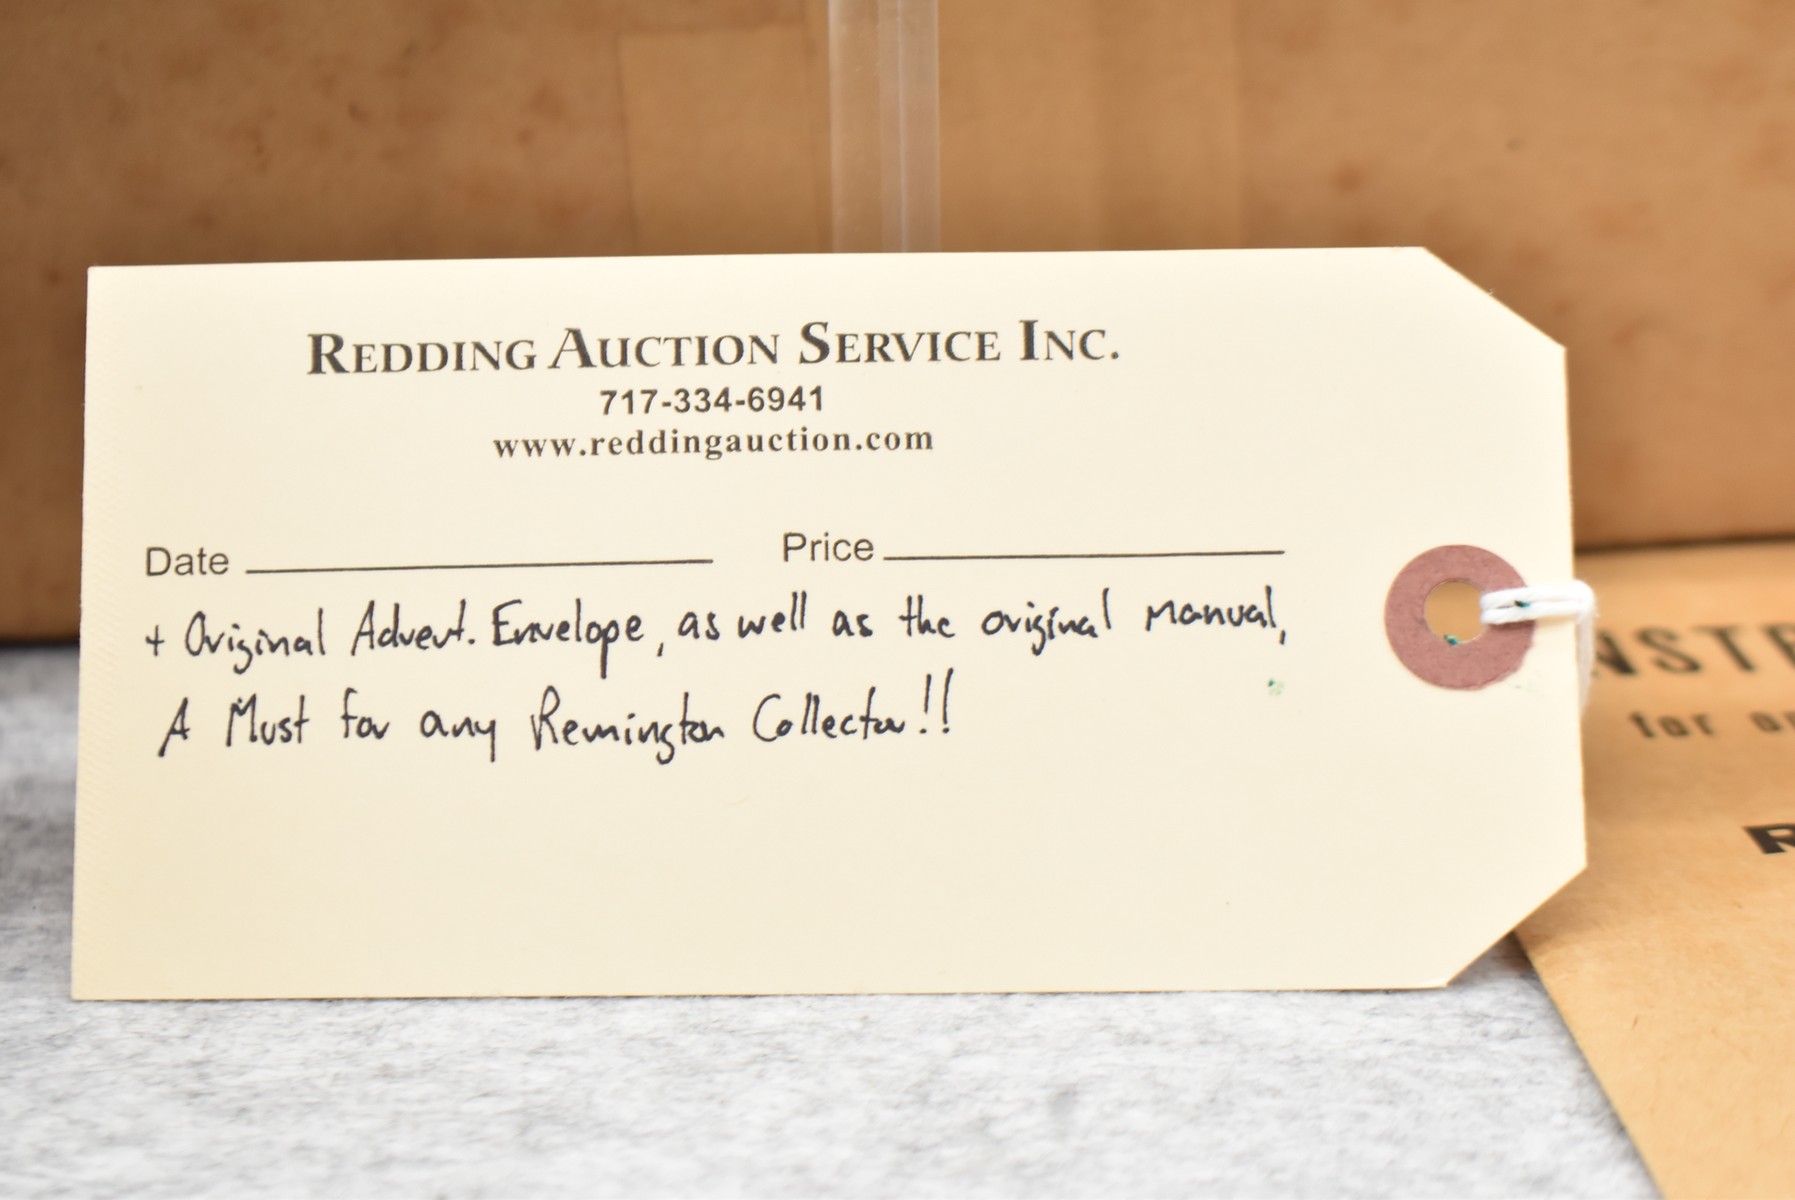 REDDING AUCTION SERVICE INC.
717-334-6941
www.reddingauction.com
Date Price
+ Original Advert. Envelope, as well as the original manual,
A Must for any Remington Collector!!
for